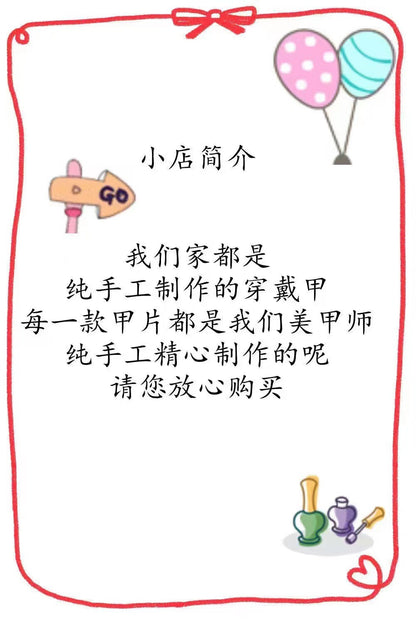 小店简介
GO
我们家都是
纯手工制作的穿戴甲
每一款甲片都是我们美甲师
纯手工精心制作的呢
请您放心购买